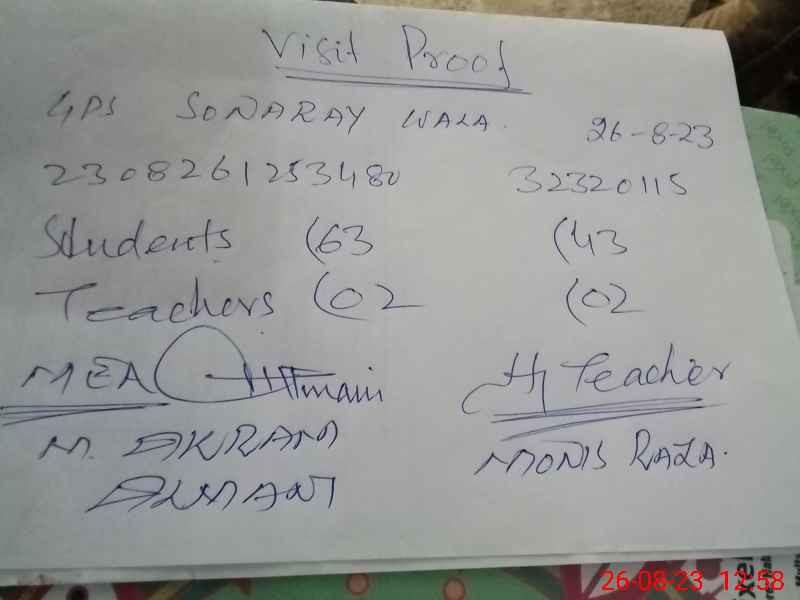 Visit Proof
GPS SONARAY WALA.
26-8-23
2308261253480
32320115
Students (63
(43
Teachers (02
(02
MEA
H Teacher
M. AKRAM
MONIS RAZA.
26-08-23 12:58